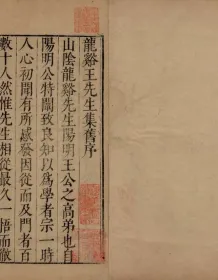 龍谿王先生集舊序
山陰龍谿先生陽明王公之高弟也自
陽明公特闡致良知以爲學者宗一時
人心初開有所感發因從而及門者百
數十人然惟先生相從最久一悟而徹